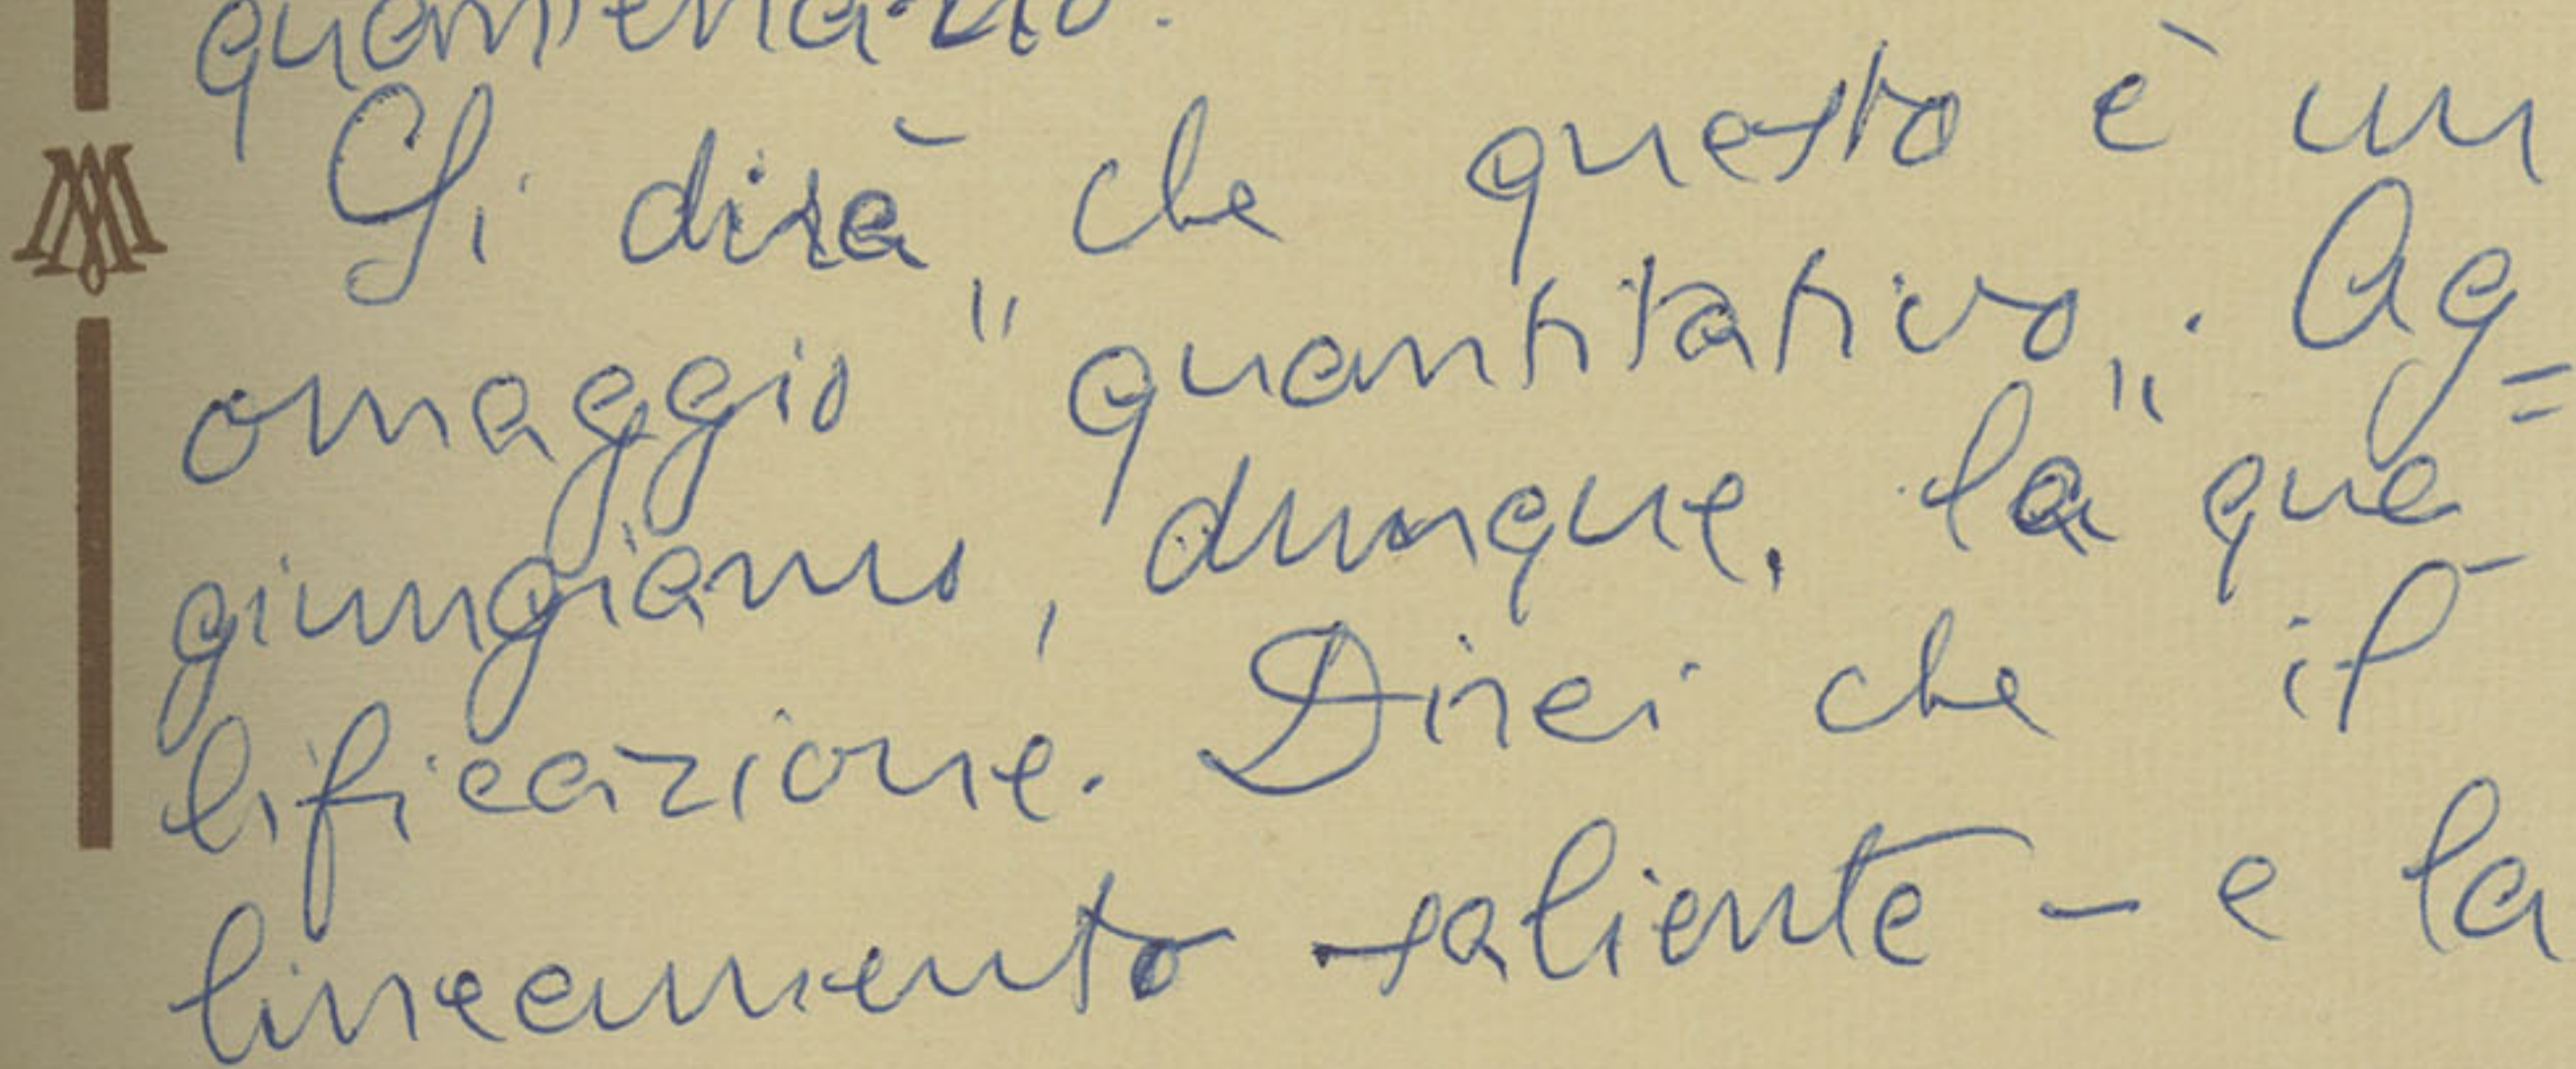 Si dirà che questo è un
omaggio "quantitativo". Ag=
giungiamo, dunque, la qua-
lificazione. Direi che il
lineamento saliente - e la